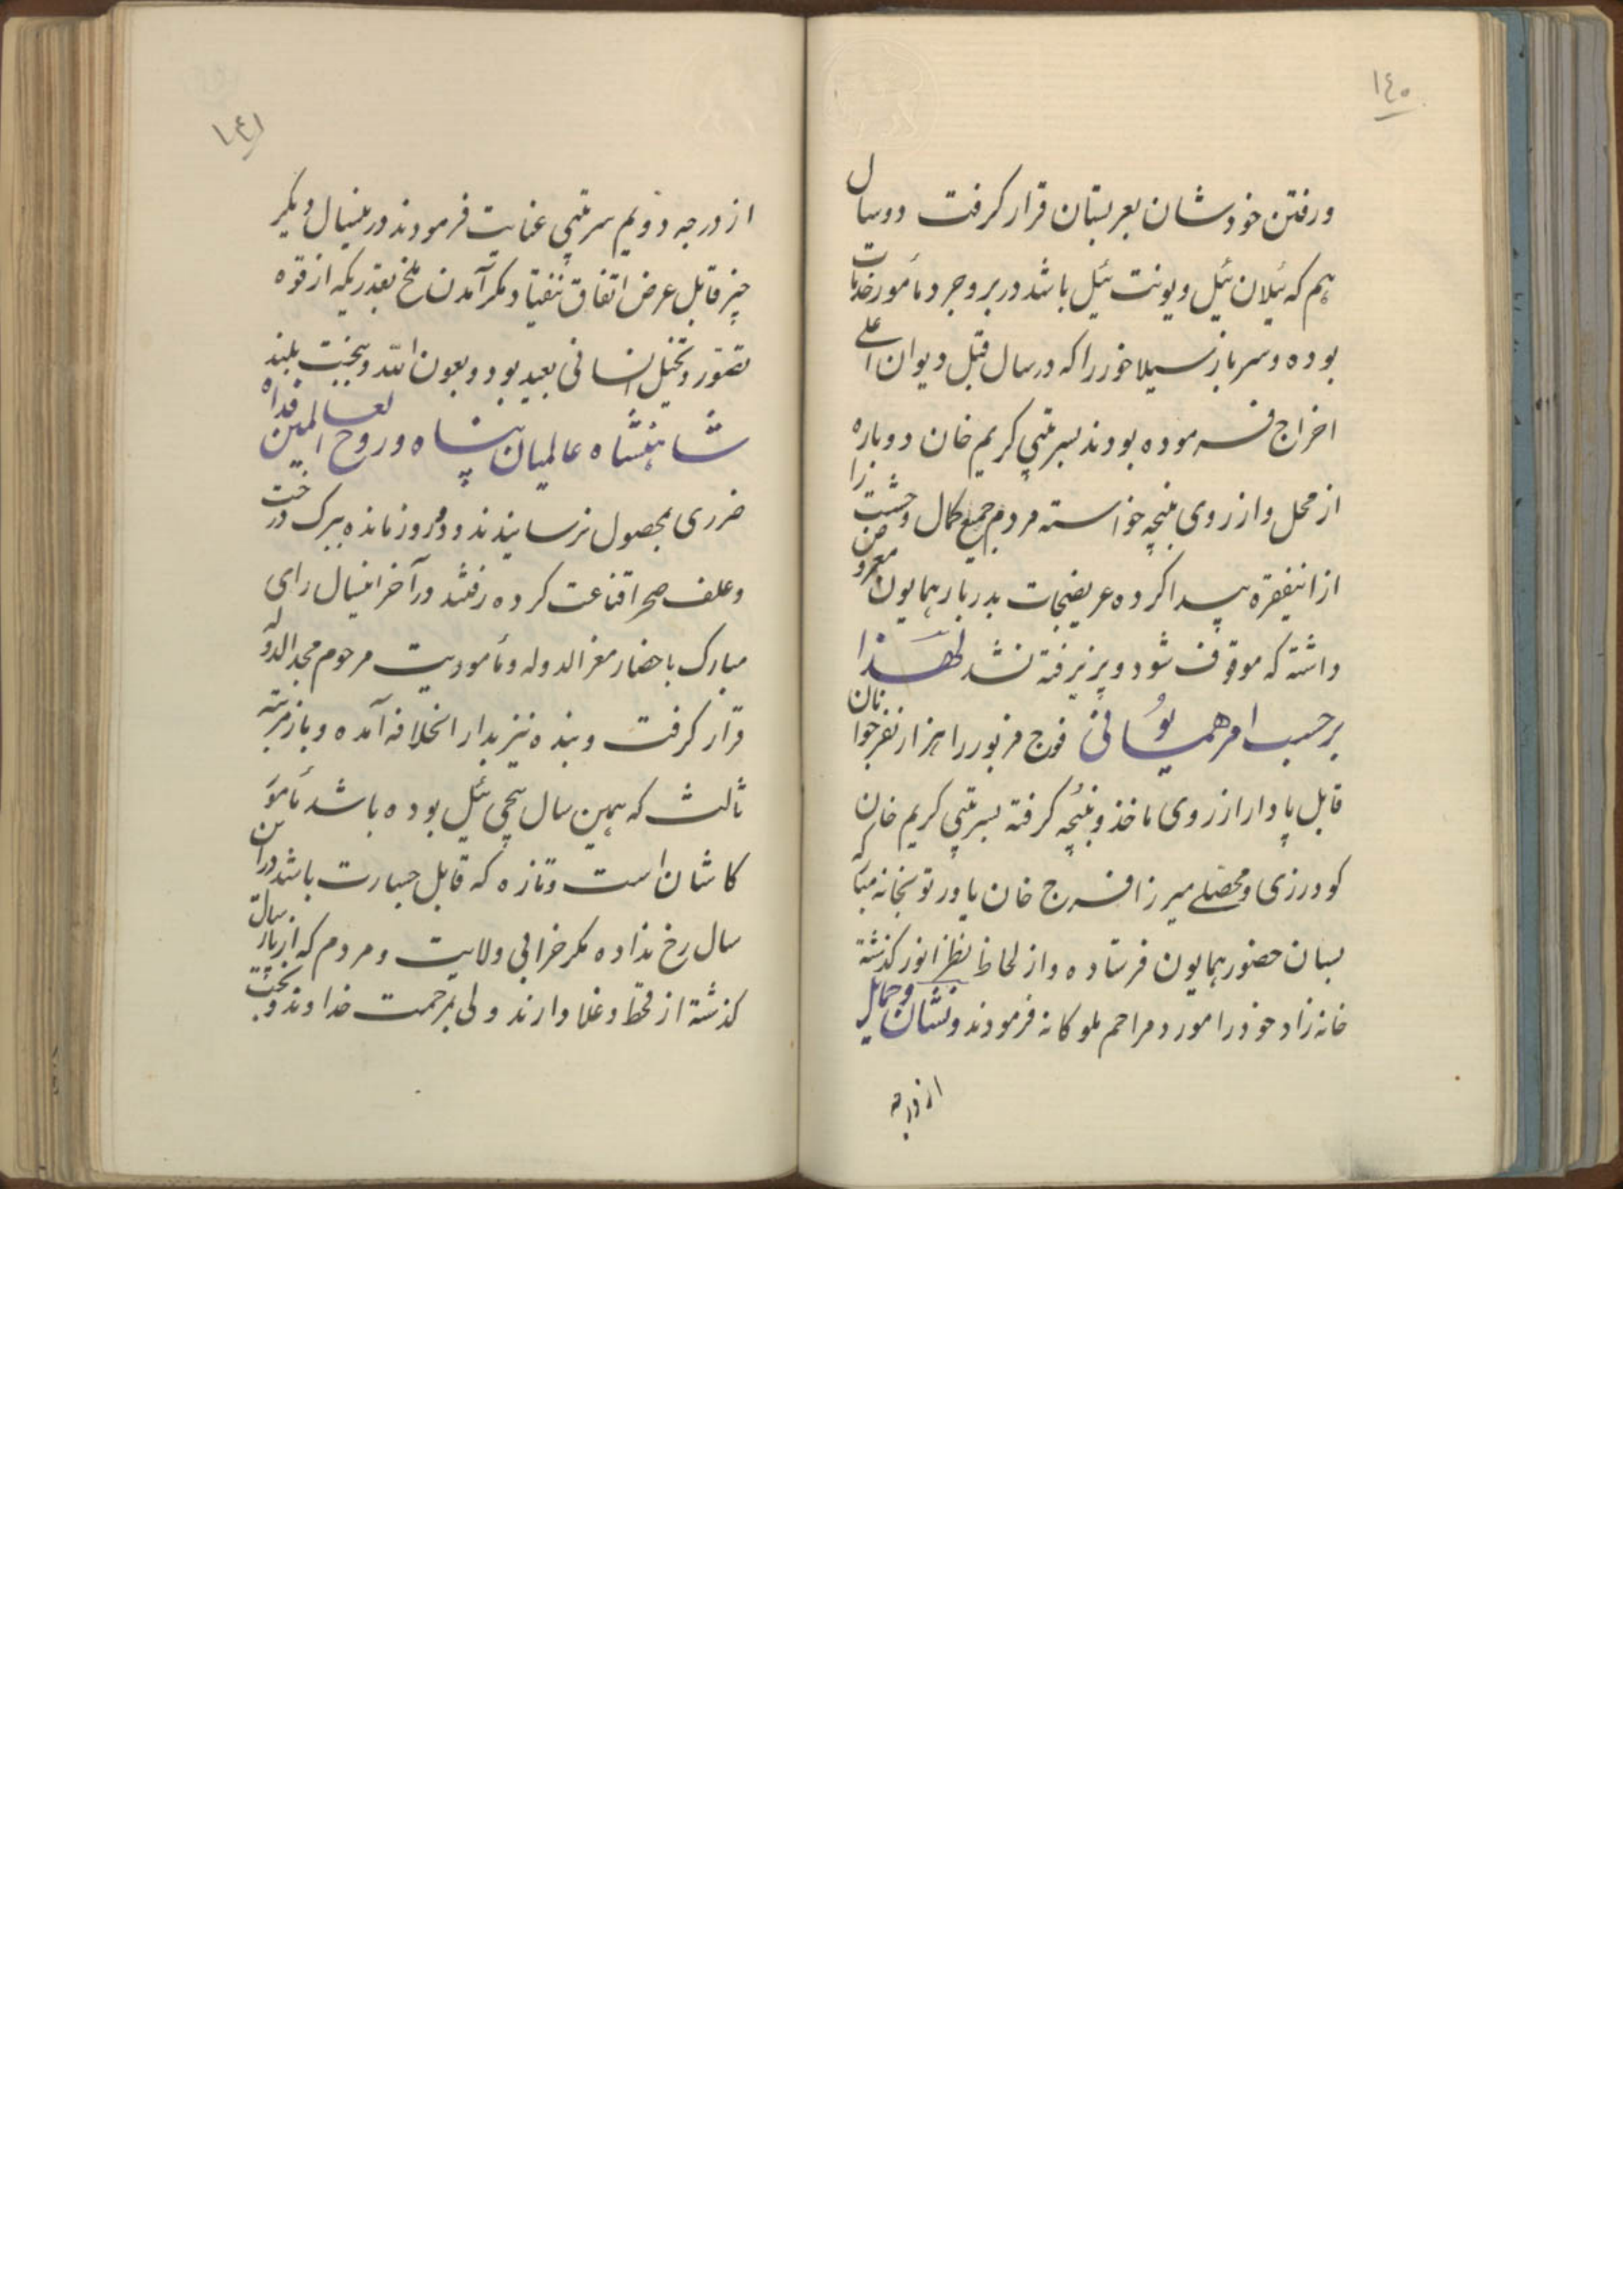 ۱۴۰
و رفتن خودشان بعربستان قرار گرفت دو سال
هم که ئیلان ئیل و یونت ئیل باشد در بروجرد مأمور خدمات
بوده و سرباز سیلاخور را که در سال قبل دیوان اعلی
اخراج فرموده بودند بسرتیپی کریم خان دوباره
از محل و از روی بنیچه خواسته مردم جمیع کمال وحشت را
از اینفقره پیدا کرده عریضجات بدربار همایون معروض
داشته که موقوف شود و پزیرفته نشد لهذا
برحسب امر همیونی فوج مزبور را هزار نفر جوانان
قابل پا دار از روی ماخذ و بنیچه گرفته بسرتیپی کریم خان
کودرزی و محصلی میرزا فرج خان یاور توپخانه مبارکه
بسان حضور همایون فرستاده و از لحاظ نظر انور گذشته
خانه زاد خود را مورد مراحم ملوکانه فرمودند و نشان و حمایل
از درجه
۱۴۱
از درجه دویم سرتیپی عنایت فرمودند در ینسال دیگر
چیز قابل عرض اتفاق نیفتاد مگر آمدن ملخ بقدریکه از قوه
تصور و تخیل انسانی بعید بود و بعون الله و ببخت بلند
شاهنشاه عالمیان پناه و روح العالمین فداه
ضرری بمحصول نرسانیدند و دو روز مانده ببرک درخت
و علف صحرا قناعت کرده رفتند در آخر اینسال رای
مبارک باحضار معزالدوله و مأموریت مرحوم مجدالدوله
قرار گرفت و بنده نیز بدار الخلافه آمده و باز مرتبه
ثالث که همین سال پیچی ئیل بوده باشد مأمور
کاشان است و تازه که قابل جسارت باشد در این
سال رخ نداده مگر خرابی ولایت و مردم که از پارسال
گذشته از قحط و غلا دارند ولی بمرحمت خداوند و ببخت